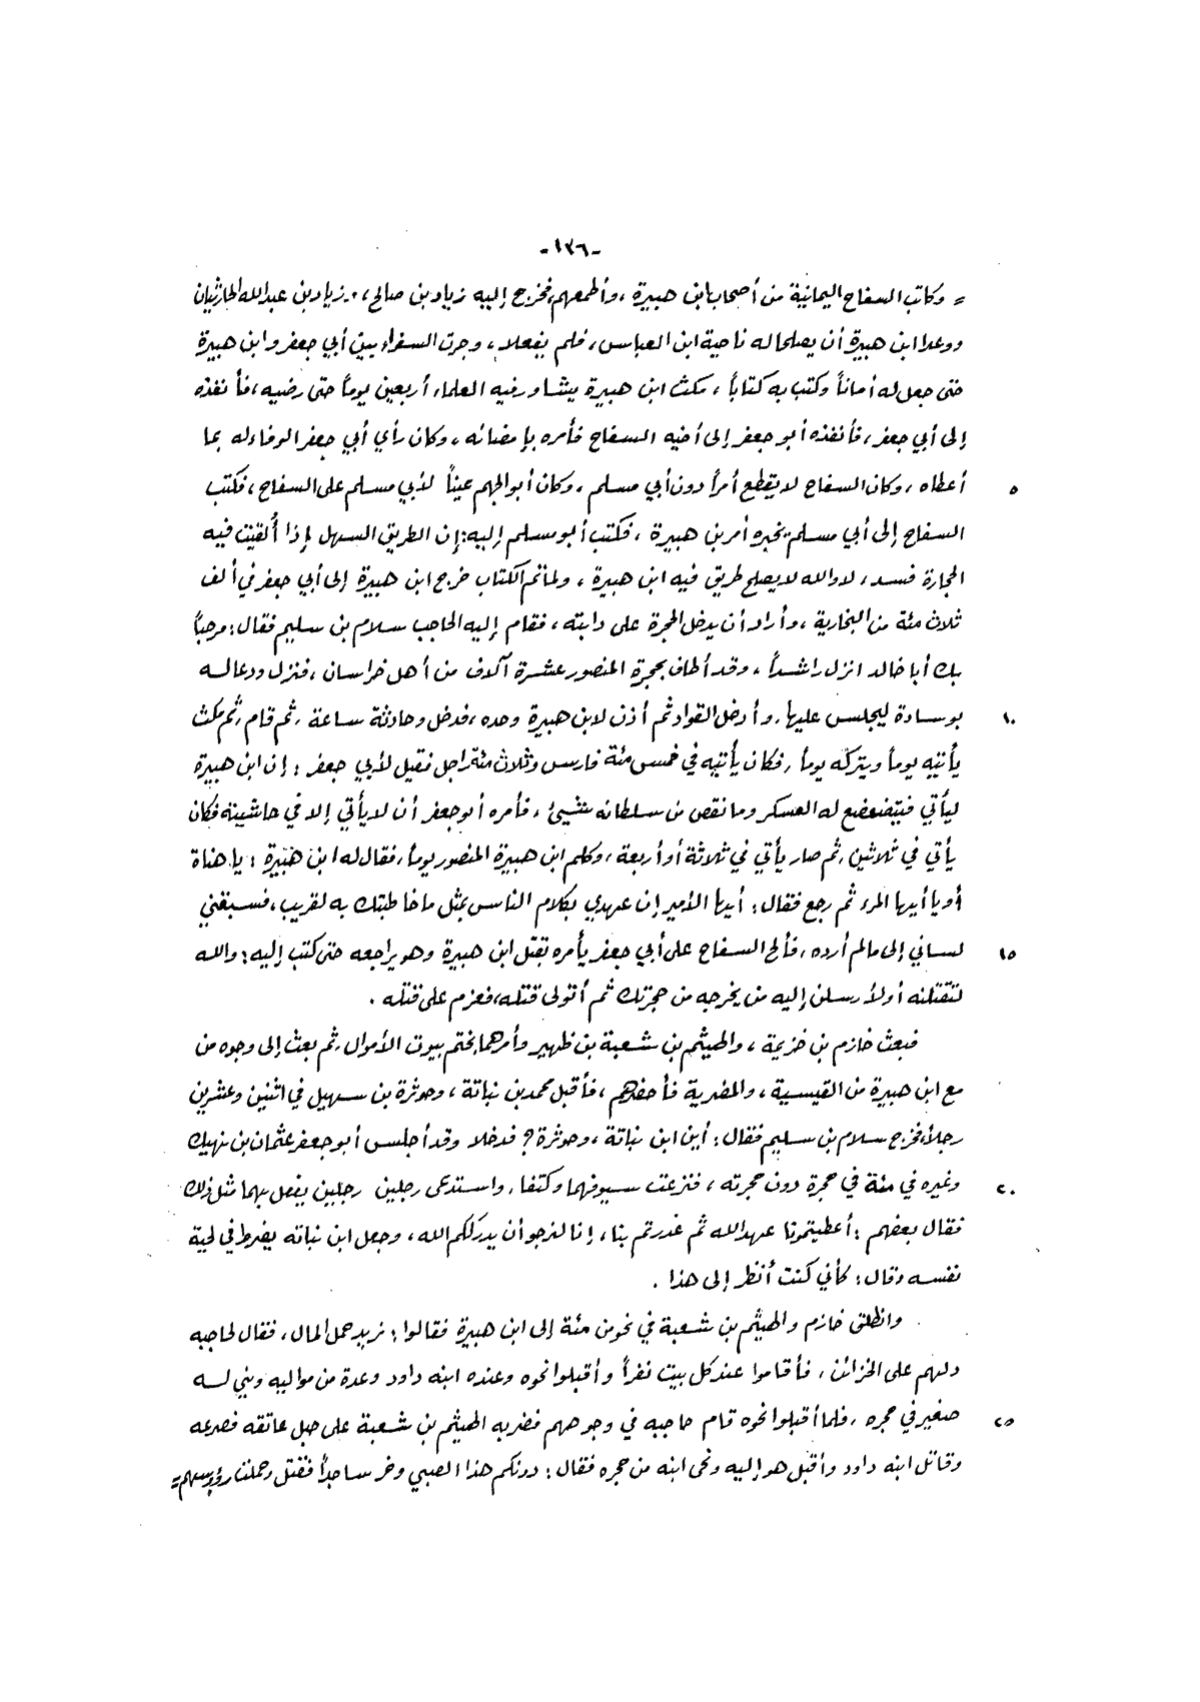 -١٣٦-
= وكاتب السفاح اليمانية من أصحاب ابن هبيرة ، وأطمعهم، فخرج إليه زياد بن صالح ، وزياد بن عبد الله الحارثيان
ووعدا ابن هبيرة أن يصلحا له ناحية ابن العباس ، فلم يفعلا ، وجرت السفراء بين أبي جعفر وابن هبيرة
حتى جعل له أماناً وكتب به كتاباً ، مكث ابن هبيرة يشاور فيه العلماء أربعين يوماً حتى رضيه ، فأنفذه
إلى أبي جعفر ، فأنفذه أبو جعفر إلى أخيه السفاح فأمره بإمضائه ، وكان رأي أبي جعفر الوفاء له بما
٥ أعطاه ، وكان السفاح لا يقطع أمراً دون أبي مسلم ، وكان أبو الجهم عيناً لأبي مسلم على السفاح ، فكتب
السفاح إلى أبي مسلم يخبره أمر بن هبيرة ، فكتب أبو مسلم إليه: إن الطريق السهل إذا ألقيت فيه
الحجارة فسد ، لا والله لا يصلح طريق فيه ابن هبيرة ، ولما تم الكتاب خرج ابن هبيرة إلى أبي جعفر في ألف
ثلاث مئة من البخارية ، وأراد أن يدخل الحجرة على دابته ، فقام إليه الحاجب سلام بن سليم فقال : مرحباً
بك أبا خالد انزل راشداً ، وقد أطاف بحجرة المنصور عشرة آلاف من أهل خراسان ، فنزل ودعا له
١٠ بوسادة ليجلس عليها ، وأدخل القواد ثم أذن لابن هبيرة وحده ، فدخل وحادثه ساعة ، ثم قام ، ثم مكث
يأتيه يوماً ويتركه يوماً ، فكان يأتيه في خمس مئة فارس وثلاث مئة راجل فقيل لأبي جعفر : إن ابن هبيرة
ليأتي فيتضعضع له العسكر وما نقص من سلطانه شيئ ، فأمره أبو جعفر أن لا يأتي إلا في حاشيته فكان
يأتي في ثلاثين ، ثم صار يأتي في ثلاثة أو أربعة ، وكلم ابن هبيرة المنصور يوماً ، فقال له ابن هبيرة : يا هناة
أو يا أيها المرء ثم رجع فقال : أيها الأمير إن عهدي بكلام الناس بمثل ما خاطبتك به لقريب ، فسبقني
١٥ لساني إلى ما لم أرده ، فألح السفاح على أبي جعفر يأمره بقتل ابن هبيرة وهو يراجعه حتى كتب إليه : والله
لتقتلنه أو لأرسلن إليه من يخرجه من حجرتك ثم أتولى قتله ، فعزم على قتله .
فبعث خازم بن خزيمة ، والهيثم بن شعبة بن ظهير وأمرهما بختم بيوت الأموال ، ثم بعث إلى وجوه من
مع ابن هبيرة من القيسية ، والمضرية فأحضرهم ، فأقبل محمد بن نباتة ، وحوثرة بن سهيل في اثنين وعشرين
رجلاً، فخرج سلام بن سليم فقال : أين ابن نباتة ، وحوثرة ؟ فدخلا وقد أجلس أبو جعفر عثمان بن نهيك
٢٠ وغيره في مئة في حجرة دون حجرته ، فنزعت سيوفهما وكتفا ، واستدعى رجلين رجلين يفعل بهما مثل ذلك
فقال بعضهم : أعطيتمونا عهد الله ثم غدرتم بنا ، إنا لنرجو أن يدرككم الله ، وجعل ابن نباته يضرط في لحية
نفسه وقال : كأني كنت أنظر إلى هذا .
وانطلق خازم والهيثم بن شعبة في نحو من مئة إلى ابن هبيرة فقالوا : نريد حمل المال ، فقال لحاجبه
دلهم على الخزائن ، فأقاموا عند كل بيت نفراً وأقبلوا نحوه وعنده ابنه داود وعدة من مواليه وبني له
٢٥ صغير في حجره ، فلما أقبلوا نحوه قام حاجبه في وجوههم فضربه الهيثم بن شعبة على حبل عاتقه فصرعه
وقاتل ابنه داود وأقبل هو إليه ونحى ابنه من حجره فقال : دونكم هذا الصبي وخر ساجداً فقتل وحملت رؤوسهم =